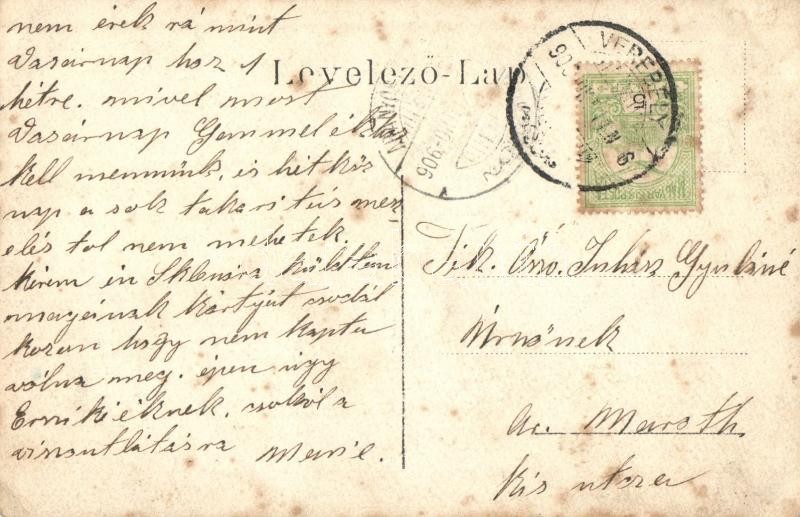 nem érek rá mint
Vasárnap hoz 1
hétre. mivel most
Vasárnap
kell mennünk, és hétköz
nap a sok takaritás mez
elés tol nem mehetek.
kérem én küldtem
magának kártyát csodál
kozom hogy nem kapta
volna meg. épen úgy
Ernikééknek. csokol a
viszontlátásra Marie.
Levelező-Lap
VEREBÉLY
906
Tek. Özv. Juhász Gyuláné
Úrnőnek
Ar. Maróth
Kis utcza